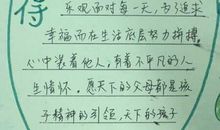 得
乐观面对每一天,为了追求
幸福而在生活底层努力拼搏
心中装着他人,有着不平凡的人
生情怀。愿天下的父母都是孩
子精神的引领,天下的孩子